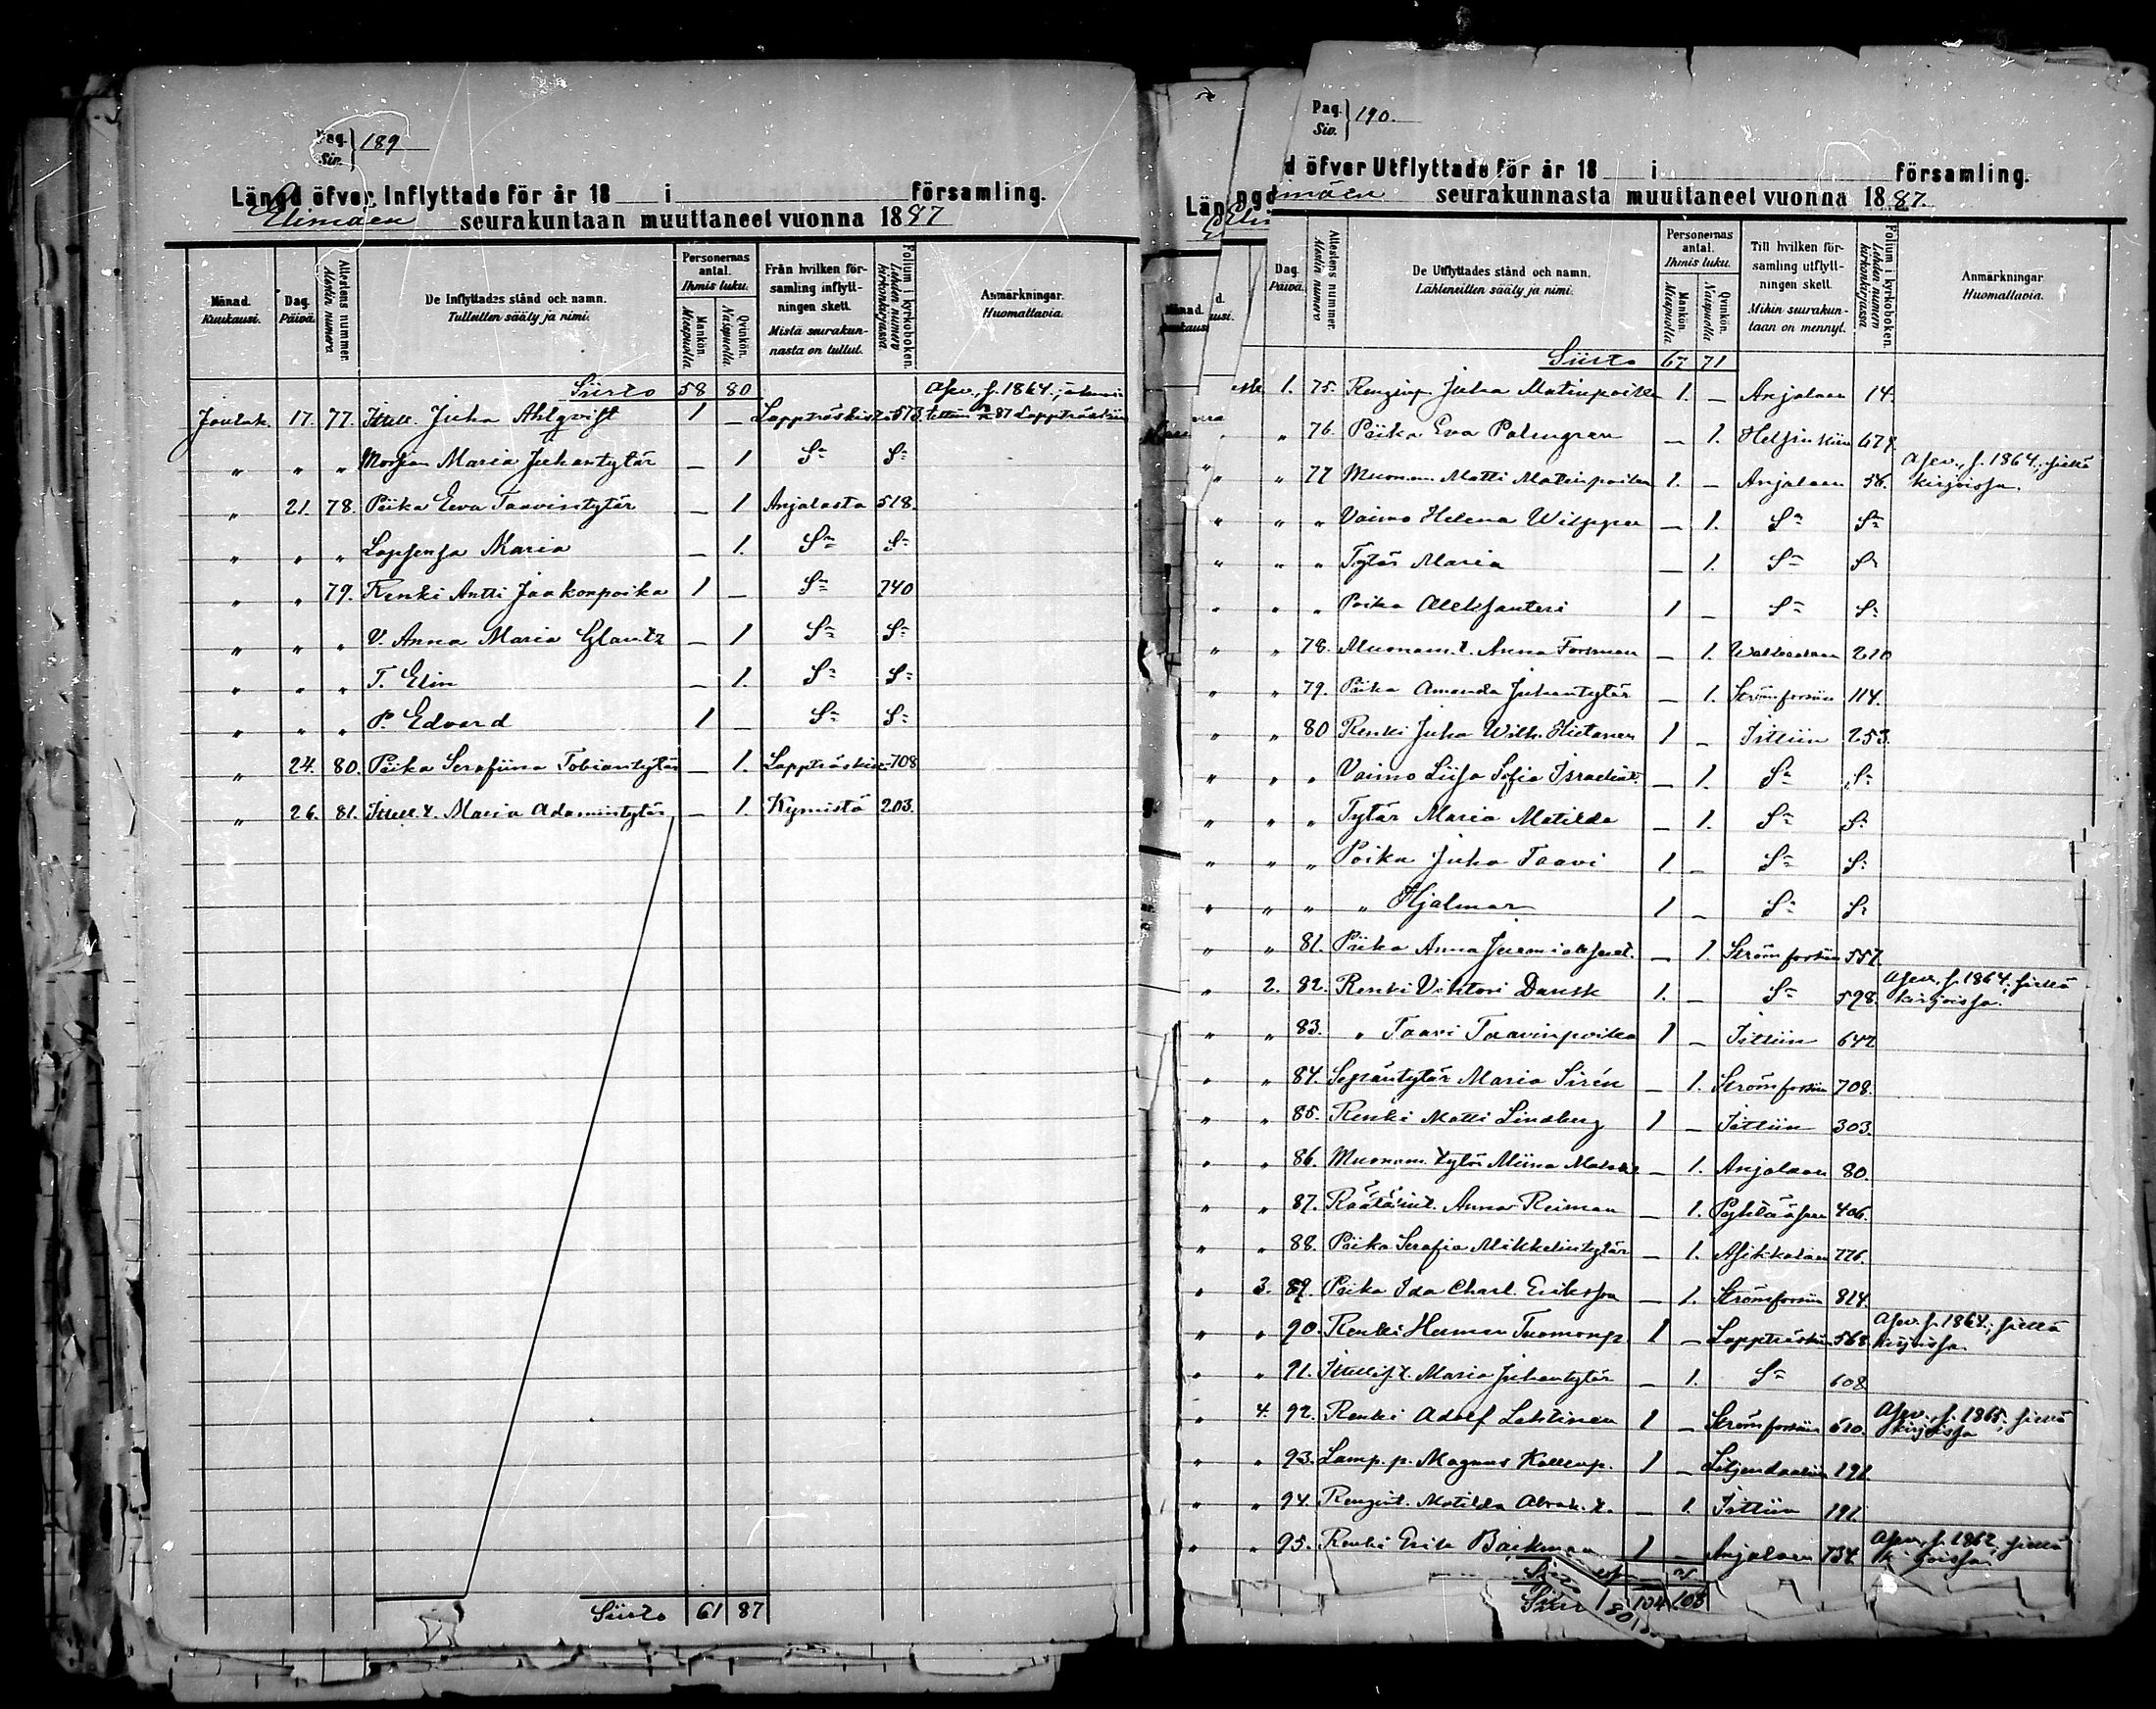 Pag. Siv. } 189
Längd öfver Inflyttade för år 18 i församling.
Elimäen seurakuntaan muuttaneet vuonna 1887
Månad. Kuukausi. Dag. Päivä. Attestens nummer. Allestin numero De Inflyttades stånd och namn. Tulleitten sääty ja nimi. Personernas antal. Ihmis luku. Mankön. Miespuolia Qvinkön. Naispuolia. Från hvilken församling inflyttningen skett. Mistä seurakunnasta on tullut. Folium i kyrkoboken. Lehden numero kirkonkirjassa. Anmärkningar. Huomattavia.
Siirto 58 80
Jouluk. 17. 77. Itsell. Juha Ahlqvist 1 — Lappträskistä 573. Asev. f. 1864.;
" " " Morsian Maria Juhantytär — 1 Sn S:
" 21. 78. Piika Eeva Taavintytär — 1 Anjalasta 518.
" " " Lapsensa Maria — 1. Sn S:
" " 79. Renki Antti Jaakonpoika 1 — Sn 740
" " " V. Anna Maria Glantz — 1 Sn S:
" " " T. Elin — 1. Sn S:
" " " P. Edvard 1 — Sn S:
" 24. 80. Piika Serafiina Tobiantytär — 1. Lappträskistä 708
" 26. 81. Itsell. t. Maria Adamintytär — 1. Kymistä 203.
Siirto 61 87
Pag. Siv. } 190.
d öfver Utflyttade för år 18 i församling.
mäen seurakunnasta muuttaneet vuonna 1887.
Dag. Päivä. Attestens nummer. Allestin numero De Utflyttades stånd och namn. Lähteneitten sääty ja nimi. Personernas antal. Ihmis luku. Mankön. Miespuolia Qvinkön. Naispuolia. Till hvilken församling utflyttningen skett. Mihin seurakuntaan on mennyt. Folium i kyrkoboken. Lehden numero kirkonkirjassa. Anmärkningar Huomattavia.
Siirto 67 71
1. 75. Renginp. Juha Matinpoika 1. — Anjalaan 14.
" 76. Piika Eva Palmgren — 1. Helsinkiin 679.
" " 77 Muonam. Matti Matinpoika 1. — Anjalaan 56. Asev. f. 1864.; siellä kirjoissa.
" " " Vaimo Helena Wilppu — 1. Sn S:
" " " Tytär Maria — 1. Sn S:
" " " Poika Aleksanteri 1 — Sn S:
" " 78. Muonam. t. Anna Forsman — 1. Walkealaan 210
" " 79. Piika Amanda Juhantytär — 1. Strömforsiin 114.
" " 80 Renki Juha Wilh. Hietanen 1 — Iittiin 253.
" " " Vaimo Liisa Sofia Israelint. — 1. Sn S:
" " " Tytär Maria Matilda — 1. Sn S:
" " " Poika Juho Taavi 1 — Sn S:
" " " " Hjalmar 1 — Sn S:
" " 81. Piika Anna Jeremiaksent. — 1. Strömforsiin 557.
" 2. 82. Renki Vihtori Dansk 1. — Sn 598. Asev. f. 1864; siellä kirjoissa.
" " 83. " Taavi Taavinpoika 1 — Iittiin 647
" " 84. Sepäntytär Maria Sirén — 1. Strömforsiin 708.
" " 85. Renki Matti Lindberg 1 — Iittiin 303.
" " 86. Muonam. tytär Miina — 1. Anjalaan 80.
" " 87. Räätälint. Anna Reiman — 1. Pyhtääseen 406.
" " 88. Piika Serafia Mikkelintytär — 1. Asikkalaan 776.
" 3. 89. Piika Ida Charl. Eriksson — 1. Strömforsiin 824.
" " 90. Renki Herman Tuomonp. 1 — Lappträskiin 568 Asev. f. 1864.; siellä kirjoissa.
" " 91. Itsellis. t. Maria Juhantytär — 1. Sn 608
" 4. 92. Renki Adolf Lehtinen 1 — Strömforsiin 610. Asev. f. 1865; siellä kirjoissa
" " 93. Lamp. p. Magnus Kallenp. 1 — Liljendaaliin 191
" " 94. Rengint. Matilda Abrah. t. — 1. Iittiin 191.
" " 95. Renki Erik Backman 1 — Anjalaan 734. Asev. f. 1862, siellä kirjoissa.
Siirto
104 108